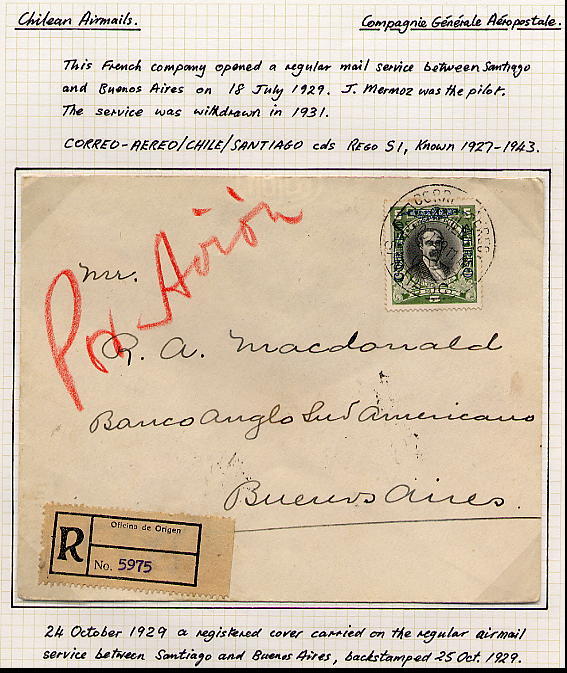 Chilean Airmails. Compagnie Générale Aéropostale.
This French company opened a regular mail service between Santiago
and Buenos Aires on 18 July 1929. J. Mermoz was the pilot.
The service was withdrawn in 1931.
CORREO-AEREO/CHILE/SANTIAGO cds REGO S1, Known 1927-1943.
Por Avión
Mr.
R. A. Macdonald
Banco Anglo Sud Americano
Buenos Aires.
R
Oficina de Origen
No. 5975
24 October 1929 a registered cover carried on the regular airmail
service between Santiago and Buenos Aires, backstamped 25 Oct. 1929.